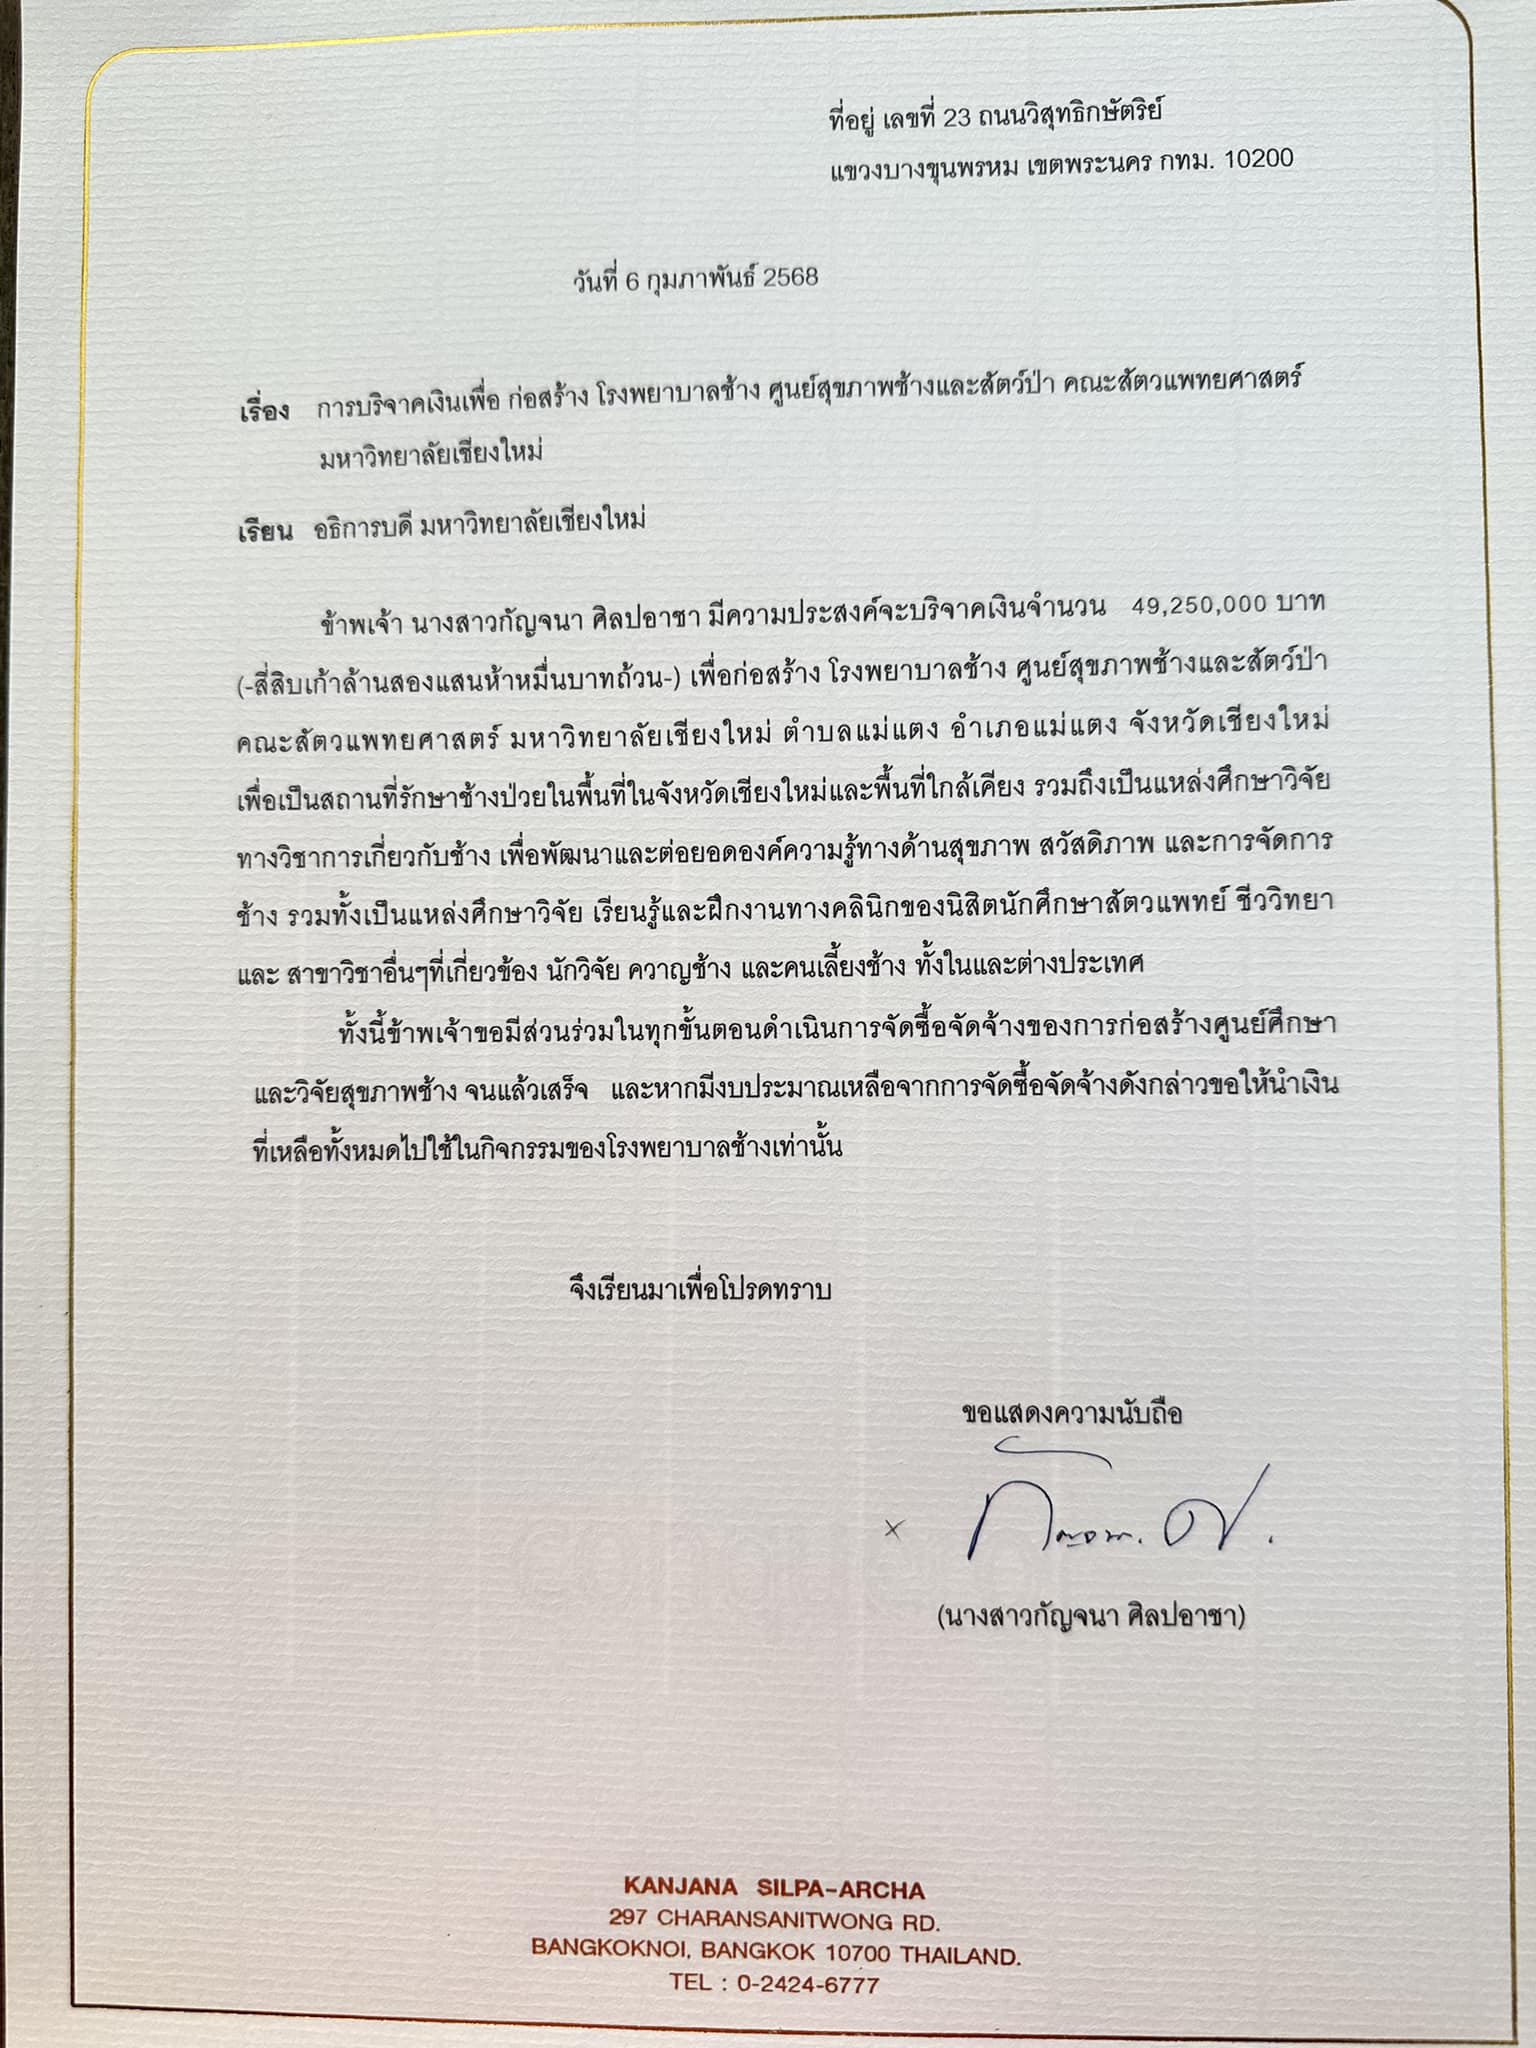 ที่อยู่ เลขที่ 23 ถนนวิสุทธิกษัตริย์
แขวงบางขุนพรหม เขตพระนคร กทม. 10200
วันที่ 6 กุมภาพันธ์ 2568
เรื่อง การบริจาคเงินเพื่อ ก่อสร้าง โรงพยาบาลช้าง ศูนย์สุขภาพช้างและสัตว์ป่า คณะสัตวแพทยศาสตร์
มหาวิทยาลัยเชียงใหม่
เรียน อธิการบดี มหาวิทยาลัยเชียงใหม่
ข้าพเจ้า นางสาวกัญจนา ศิลปอาชา มีความประสงค์จะบริจาคเงินจำนวน 49,250,000 บาท
(-สี่สิบเก้าล้านสองแสนห้าหมื่นบาทถ้วน-) เพื่อก่อสร้าง โรงพยาบาลช้าง ศูนย์สุขภาพช้างและสัตว์ป่า
คณะสัตวแพทยศาสตร์ มหาวิทยาลัยเชียงใหม่ ตำบลแม่แตง อำเภอแม่แตง จังหวัดเชียงใหม่
เพื่อเป็นสถานที่รักษาช้างป่วยในพื้นที่ในจังหวัดเชียงใหม่และพื้นที่ใกล้เคียง รวมถึงเป็นแหล่งศึกษาวิจัย
ทางวิชาการเกี่ยวกับช้าง เพื่อพัฒนาและต่อยอดองค์ความรู้ทางด้านสุขภาพ สวัสดิภาพ และการจัดการ
ช้าง รวมทั้งเป็นแหล่งศึกษาวิจัย เรียนรู้และฝึกงานทางคลินิกของนิสิตนักศึกษาสัตวแพทย์ ชีววิทยา
และ สาขาวิชาอื่นๆที่เกี่ยวข้อง นักวิจัย ควาญช้าง และคนเลี้ยงช้าง ทั้งในและต่างประเทศ
ทั้งนี้ข้าพเจ้าขอมีส่วนร่วมในทุกขั้นตอนดำเนินการจัดซื้อจัดจ้างของการก่อสร้างศูนย์ศึกษา
และวิจัยสุขภาพช้าง จนแล้วเสร็จ และหากมีงบประมาณเหลือจากการจัดซื้อจัดจ้างดังกล่าวขอให้นำเงิน
ที่เหลือทั้งหมดไปใช้ในกิจกรรมของโรงพยาบาลช้างเท่านั้น
จึงเรียนมาเพื่อโปรดทราบ
ขอแสดงความนับถือ
x กัญจนา. ศิ.
(นางสาวกัญจนา ศิลปอาชา)
KANJANA SILPA-ARCHA
297 CHARANSANITWONG RD.
BANGKOKNOI, BANGKOK 10700 THAILAND.
TEL : 0-2424-6777